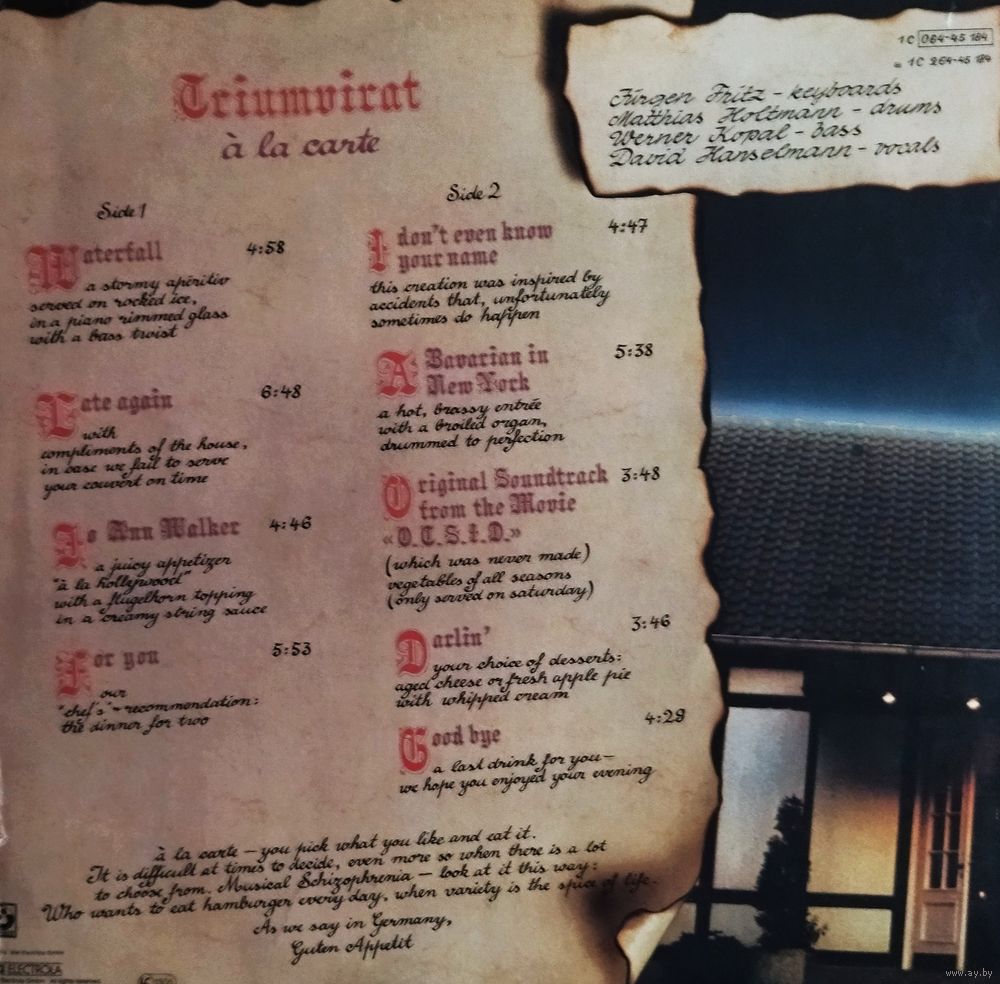 Triumvirat
à la carte
1C 064-45 184
1C 264-45 184
Jürgen Fritz - keyboards
Matthias Holtmann - drums
Werner Kopal - bass
David Hanselmann - vocals
Side 1
Waterfall 4:58
a stormy apéritiv
served on rocked ice,
in a piano rimmed glass
with a bass twist
Late again 6:48
with
compliments of the house,
in case we fail to serve
your couvert on time
Jo Ann Walker 4:46
a juicy appetizer
"à la hollywood"
with a flügelhorn topping
in a creamy string sauce
For you 5:53
our
"chef's"-recommendation:
the dinner for two
Side 2
I don't even know 4:47
your name
this creation was inspired by
accidents that, unfortunately
sometimes do happen
A Bavarian in 5:38
New York
a hot, brassy entrée
with a broiled organ,
drummed to perfection
Original Soundtrack 3:48
from the Movie
«O.T.S.t.D.»
(which was never made)
vegetables of all seasons
(only served on saturday)
Darlin' 3:46
your choice of desserts:
aged cheese or fresh apple pie
with whipped cream
Good bye 4:29
a last drink for you—
we hope you enjoyed your evening
à la carte — you pick what you like and eat it.
It is difficult at times to decide, even more so when there is a lot
to choose from. Musical Schizophrenia — look at it this way:
Who wants to eat hamburger every day, when variety is the spice of life.
As we say in Germany,
Guten Appetit
ELECTROLA
www.ay.by